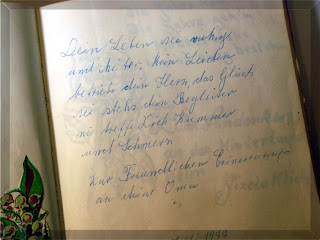 Dein Leben sei ruhig
und heiter, kein Leiden
betrübe dein Herz, das Glück
sei stets dein Begleiter
nie treffe Dich Kummer
und Schmerz
Zur Freundlichen Erinnerung
an deine Oma